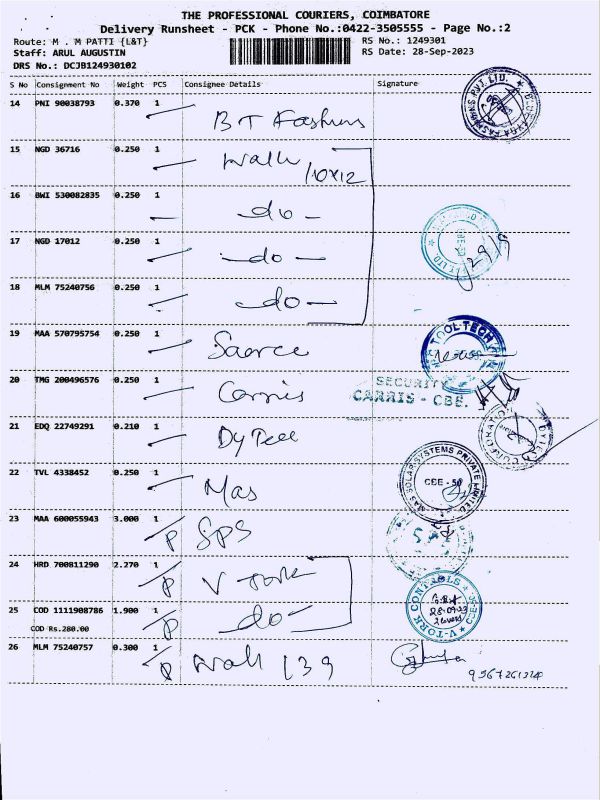 THE PROFESSIONAL COURIERS, COIMBATORE
Delivery Runsheet - PCK - Phone No.:0422-3505555 - Page No.:2
Route: M . M PATTI {L&T} RS No.: 1249301
Staff: ARUL AUGUSTIN RS Date: 28-Sep-2023
DRS No.: DCJB124930102
S No Consignment No Weight PCS Consignee Details Signature
14 PNI 90038793 0.370 1
B T Fashions
15 NGD 36716 0.250 1
10x12
16 BWI 530082835 0.250 1 - do -
17 NGD 17012 0.250 1 - do -
29/9
18 MLM 75240756 0.250 1 - do -
19 MAA 570795754 0.250 1
TOOL TECH
20 TMG 200496576 0.250 1 Carris
SECURITY
CARRIS - CBE.
21 EDQ 22749291 0.210 1
CORPORATION
22 TVL 4338452 0.250 1 Mas
MAS SOLAR SYSTEMS PRIVATE LIMITED
23 MAA 600055943 3.000 1 P SPS
24 HRD 700811290 2.270 1 P V Tork
25 COD 1111908786 1.900 1 P - do -
COD Rs.280.00
V-TORK CONTROLS
28.09.23
26 MLM 75240757 0.300 1 P 139